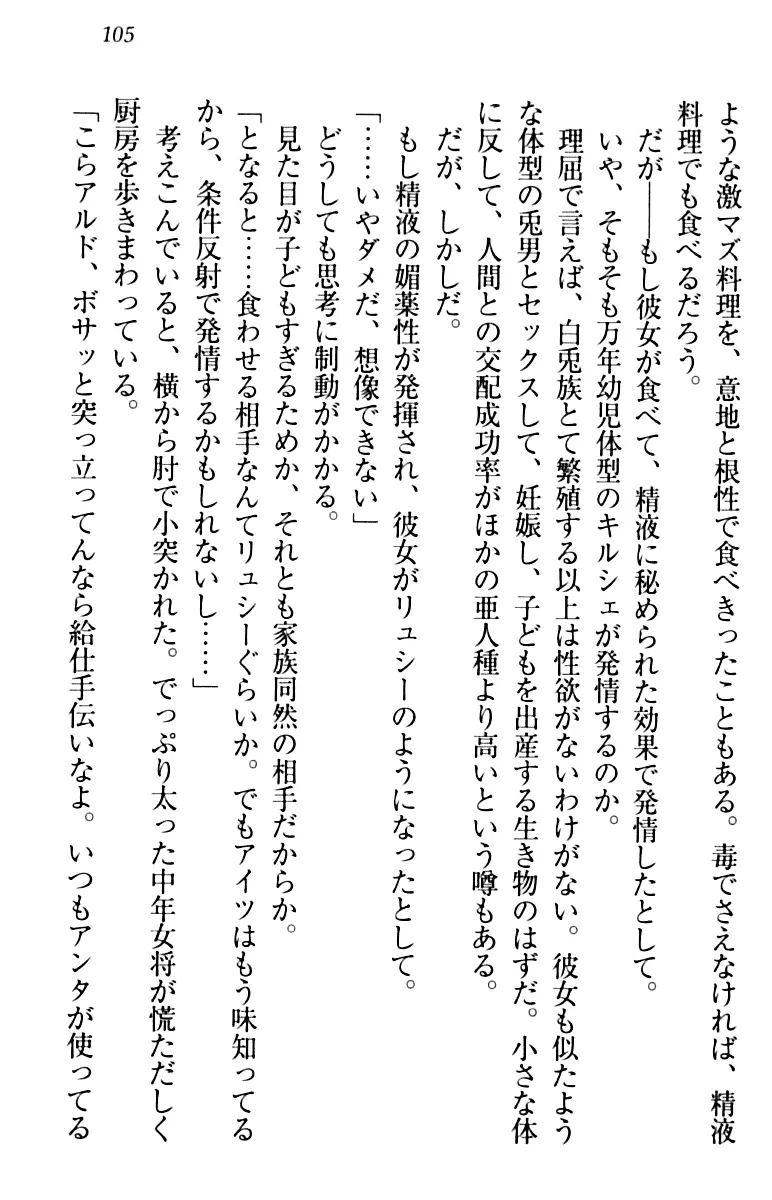 105
ような激マズ料理を、意地と根性で食べきったこともある。毒でさえなければ、精液
料理でも食べるだろう。
だが――もし彼女が食べて、精液に秘められた効果で発情したとして。
いや、そもそも万年幼児体型のキルシェが発情するのか。
理屈で言えば、白兎族とて繁殖する以上は性欲がないわけがない。彼女も似たよう
な体型の兎男とセックスして、妊娠し、子どもを出産する生き物のはずだ。小さな体
に反して、人間との交配成功率がほかの亜人種より高いという噂もある。
だが、しかしだ。
もし精液の媚薬性が発揮され、彼女がリュシーのようになったとして。
「……いやダメだ、想像できない」
どうしても思考に制動がかかる。
見た目が子どもすぎるためか、それとも家族同然の相手だからか。
「となると……食わせる相手なんてリュシーぐらいか。でもアイツはもう味知ってる
から、条件反射で発情するかもしれないし……」
考えこんでいると、横から肘で小突かれた。でっぷり太った中年女将が慌ただしく
厨房を歩きまわっている。
「こらアルド、ボサッと突っ立ってんなら給仕手伝いなよ。いつもアンタが使ってる